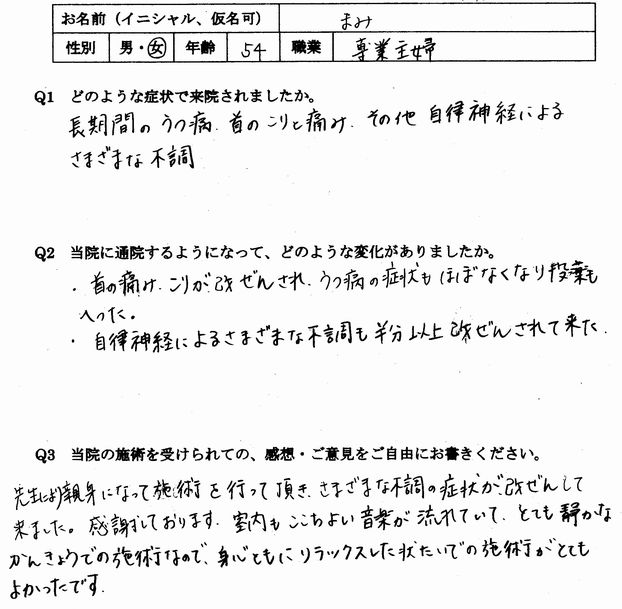 お名前（イニシャル、仮名可） まみ
性別 男・女 年齢 54 職業 専業主婦
Q1 どのような症状で来院されましたか。
長期間のうつ病、首のこりと痛み、その他 自律神経による
さまざまな不調
Q2 当院に通院するようになって、どのような変化がありましたか。
・首の痛み、こりが改ぜんされ、うつ病の症状もほぼなくなり投薬も
へった。
・自律神経によるさまざまな不調も半分以上改ぜんされて来た。
Q3 当院の施術を受けられての、感想・ご意見をご自由にお書きください。
先生により親身になって施術を行って頂き、さまざまな不調の症状が改ぜんして
来ました。感謝しております。室内もここちよい音楽が流れていて、とても静かな
かんきょうでの施術なので、身心ともにリラックスした状たいでの施術がとても
よかったです。